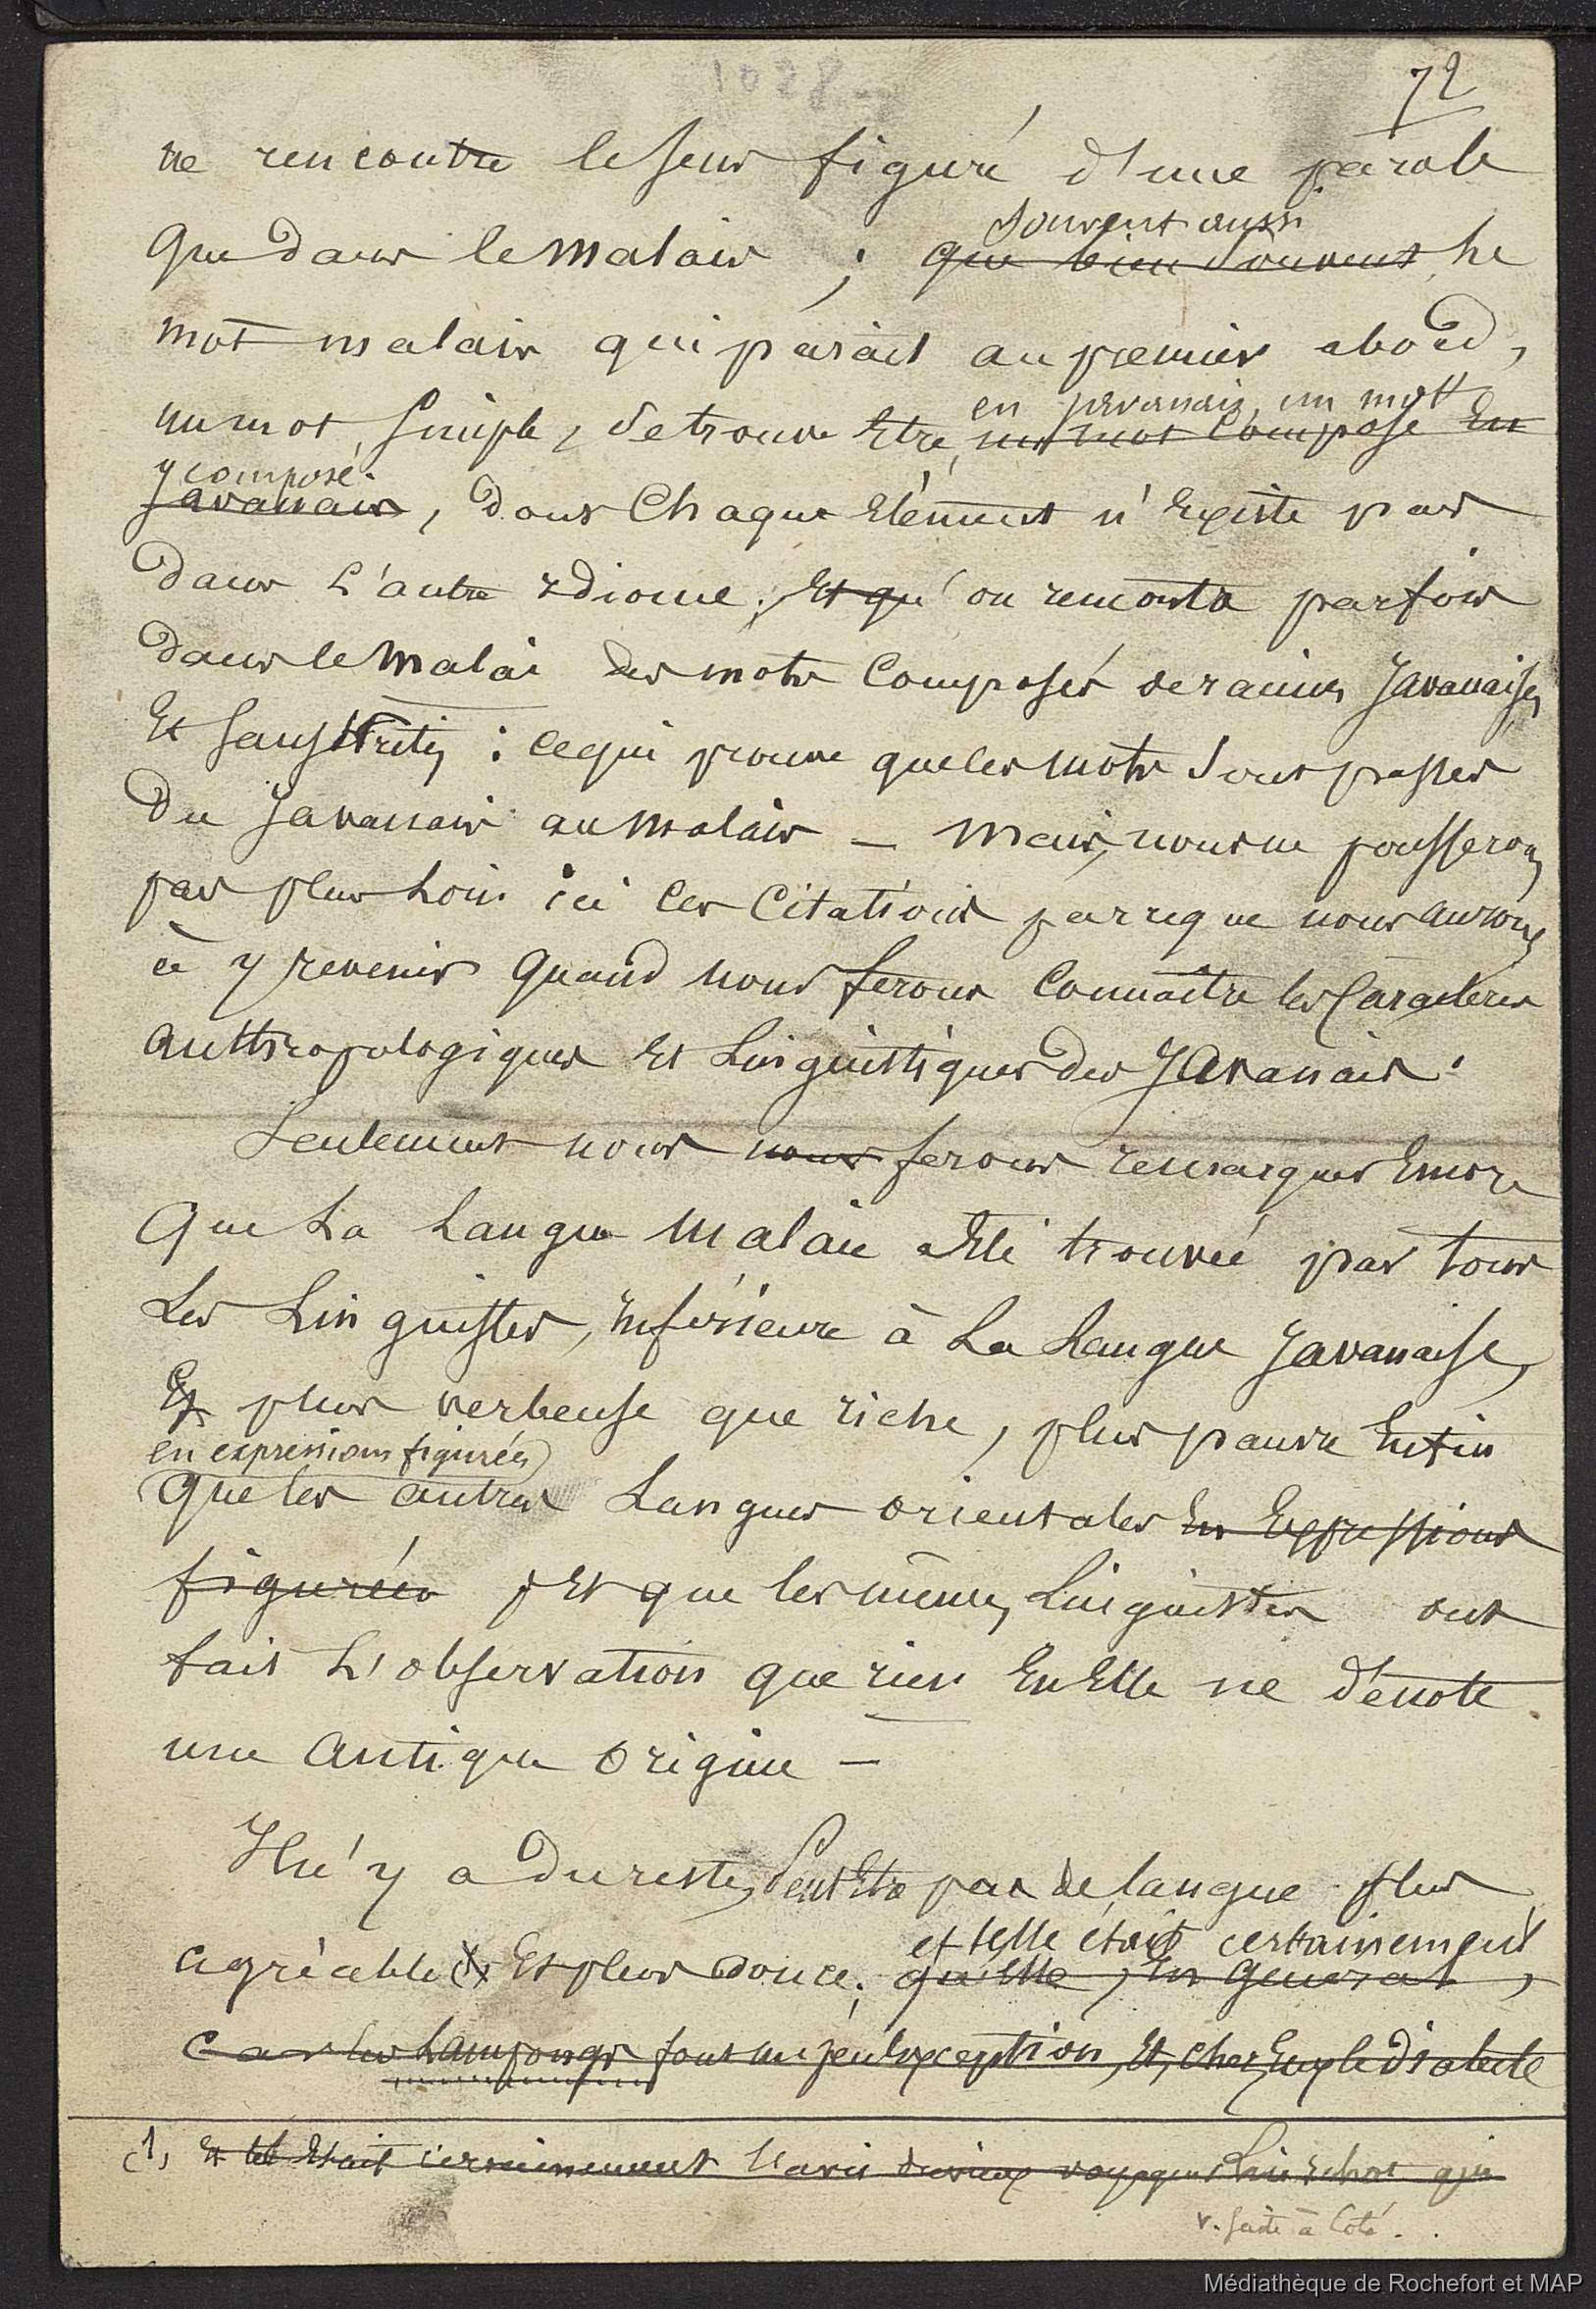 1028 -
72
ne rencontre le sens figuré d'une parole
que dans le Malais ; souvent aussi
que bien souvent le
mot malais qui parait au premier abord,
en javanais, un mot
un mot simple, se trouve Etre, un mot composé En
composé.
Javanais, dont Chaque Elément n'Existe pas
dans L'autre Idiome ; Et qu'on rencontre parfois
dans le Malai des mots Composés de racines Javanaises
Et Sanskrites : ce qui prouve que les mots sont passés
du Javanais au Malais — Mais, nous ne pousserons
pas plus Loin ici les Citations parceque nous aurons
à y revenir quand nous ferons Connaître les Caractères
anthropologiques Et Linguistiques des Javanais.
Seulement nous nous ferons remarquer Encore
Que La Langue Malaie a Eté trouvée par tous
Les Linguistes, Inférieure à La Langue Javanaise,
Et plus verbeuse que riche, plus pauvre Enfin
en expressions figurées
que les autres Langues orientales En Expressions
figurées, Et que les mêmes Linguistes ont
fait L'observation que rien En Elle ne dénote
une Antique Origine —
Il n'y a du reste, Peut Etre pas de langue plus
et telle était certainement
agréable Et plus douce ; qu'Elle, En General,
Car les Lampongs font un peu Exception, Et, chez Eux le dialecte
(1) Et tel Etait certainement l'avis du vieux voyageur Linschot qui
v. suite à côté.
Médiathèque de Rochefort et MAP